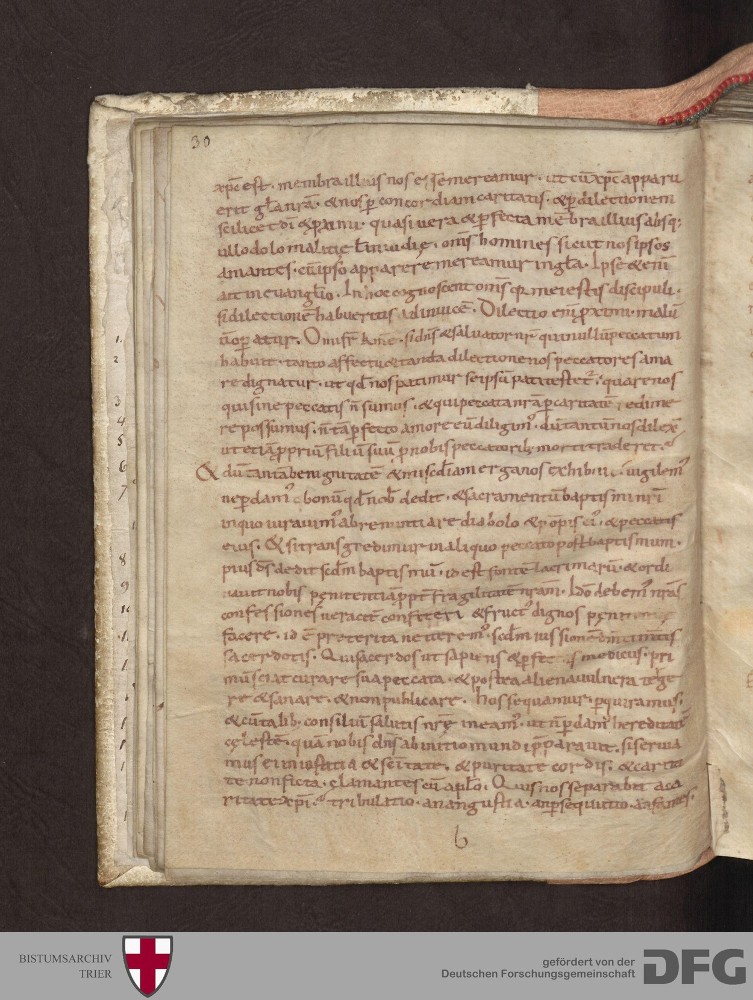 30
xp̄c est · membra illius nos eē semereamur · ut cū xp̄c apparu
erit gl̄a nr̄a · & nos ꝑ concordiam caritatis · & ꝑ dilectionem
scilicet dī & ꝓximi · quasi vera & ꝑfecta mēbra illius absq;
ullo dolo malitię l̄ inuidię · om̄s homines sicut nos ipsos
amantes · cū ipso apparere mereamur in gl̄a · Ipse & enī
ait in euangł̄io · In hoc cognoscent om̄s qꝛ mei estis discipuli ·
si dilectionē habueritis adinuicē · Dilectio enī ꝓximi · malū
ñ oꝑatur · O mi fr̄ k̄me · si dn̄s & saluator nr̄ qui nullū peccatum
habuit · tanto affectu & tanda dilectione nos peccatores ama
re dignatur · ut qd̄ nos patimur se ipsū pati testet᷑ · quare nos
qui sine peccatis n̄ sumus · & qui peccata nr̄a ꝑ caritatē redime
re possumus · n̄ tā ꝑfecto amore eū diligim᷒ · dū tantū nos dilex̄
ut etiā ꝓpriū filiū suū ꝓ nobis peccatorib; morti traderet ·
& dū tantā benignitatē & mīscd̄iam erga nos exhibuit · uigilem᷒
ne ꝑdam᷒ bonū qd̄ nob̄ dedit · & sacramentū baptismi nr̄i
in quo iurauim᷒ abrenuntiare diabolo & oꝑis ei᷒ · & peccatis
eius · & si transgredimur in aliquo peccato post baptismum ·
pius ds̄ dedit scd̄m baptismū · id est fontē lacrimarū · & ordi
nauit nobis pęnitentiā ꝓpt̄ fragilitatē nr̄am · Ido debem᷒ nr̄as
confessiones ueracit̄ confiteri & fruct᷒ dignos
facere · id ē preterita ne iterem᷒ · scd̄m iussionē
sacerdotis · Qui sacerdos ut sapiens & ꝑfectus medicus · pri
mū sciat curare sua peccata · & postea aliena uulnera teḡe
re & sanare · & non publicare · hos sequamur · ꝑquiramus ·
& cū talib; consiliū salutis nr̄ę ineam᷒ · ut n̄ ꝑdam᷒ hereditatē
cęlestē · quā nobis dn̄s ab initio mundi p̄parauit · si serua
mus ei iustitiā & sc̄itatē · & puritatē cordis · & carita
tē non ficta · clamantes cū apl̄o · Quis nos separabit a ca
ritate xp̄i · tribulatio · an angustia · an ꝑsequutio · an fames ·
6
BISTUMSARCHIV
TRIER
gefördert von der
Deutschen Forschungsgemeinschaft
DFG